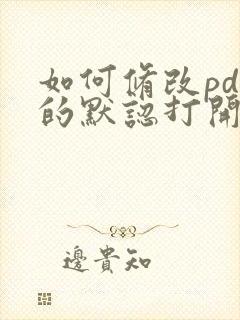 如何脩改pd
的默認打開
邊貴知